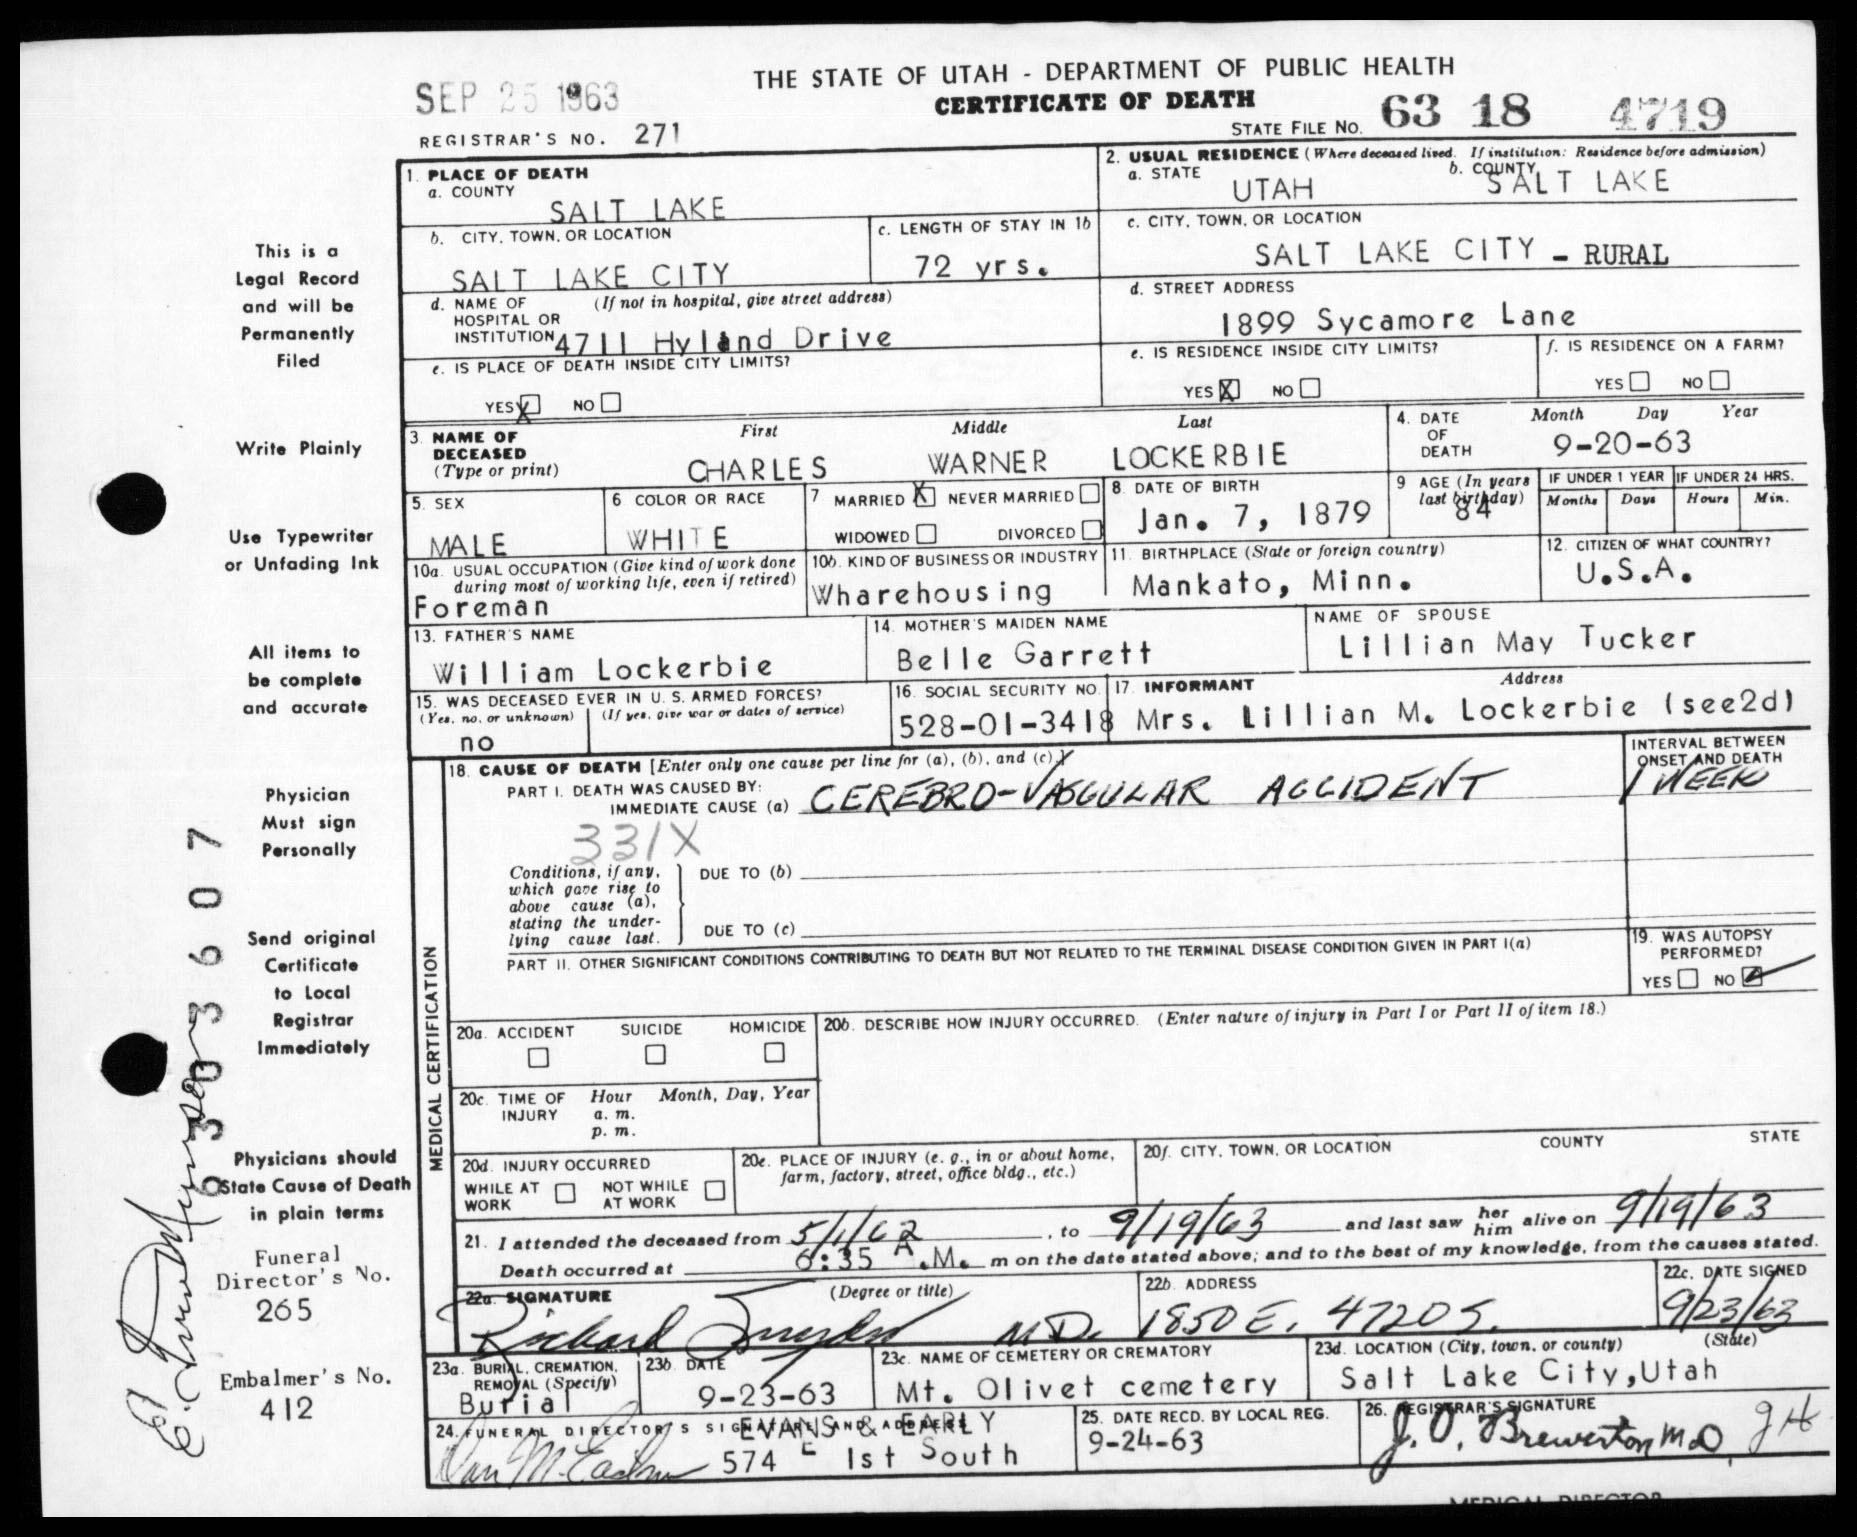 THE STATE OF UTAH - DEPARTMENT OF PUBLIC HEALTH
SEP 25 1963
CERTIFICATE OF DEATH
STATE FILE NO. 63 18 4719
REGISTRAR'S NO. 271
1. PLACE OF DEATH
a. COUNTY
SALT LAKE
2. USUAL RESIDENCE (Where deceased lived. If institution: Residence before admission)
a. STATE UTAH b. COUNTY SALT LAKE
b. CITY, TOWN, OR LOCATION
SALT LAKE CITY
c. LENGTH OF STAY IN 1b
72 yrs.
c. CITY, TOWN, OR LOCATION
SALT LAKE CITY - RURAL
d. NAME OF HOSPITAL OR INSTITUTION (If not in hospital, give street address)
4711 Hyland Drive
d. STREET ADDRESS
1899 Sycamore Lane
e. IS PLACE OF DEATH INSIDE CITY LIMITS?
YES X NO
e. IS RESIDENCE INSIDE CITY LIMITS?
YES X NO
f. IS RESIDENCE ON A FARM?
YES NO
3. NAME OF DECEASED (Type or print)
First Middle Last
CHARLES WARNER LOCKERBIE
4. DATE OF DEATH Month Day Year
9-20-63
5. SEX
MALE
6 COLOR OR RACE
WHITE
7 MARRIED X NEVER MARRIED
WIDOWED DIVORCED
8. DATE OF BIRTH
Jan. 7, 1879
9 AGE (In years last birthday)
84
IF UNDER 1 YEAR IF UNDER 24 HRS.
Months Days Hours Min.
10a. USUAL OCCUPATION (Give kind of work done during most of working life, even if retired)
Foreman
10b. KIND OF BUSINESS OR INDUSTRY
Wharehousing
11. BIRTHPLACE (State or foreign country)
Mankato, Minn.
12. CITIZEN OF WHAT COUNTRY?
U.S.A.
13. FATHER'S NAME
William Lockerbie
14. MOTHER'S MAIDEN NAME
Belle Garrett
NAME OF SPOUSE
Lillian May Tucker
15. WAS DECEASED EVER IN U. S. ARMED FORCES?
(Yes, no, or unknown) (If yes, give war or dates of service)
no
16. SOCIAL SECURITY NO.
528-01-3418
17. INFORMANT Address
Mrs. Lillian M. Lockerbie (see2d)
MEDICAL CERTIFICATION
18. CAUSE OF DEATH [Enter only one cause per line for (a), (b), and (c).]
INTERVAL BETWEEN ONSET AND DEATH
PART I. DEATH WAS CAUSED BY:
IMMEDIATE CAUSE (a) CEREBRO-VASCULAR ACCIDENT 1 WEEK
331X
Conditions, if any, which gave rise to above cause (a), stating the underlying cause last.
DUE TO (b)
DUE TO (c)
PART II. OTHER SIGNIFICANT CONDITIONS CONTRIBUTING TO DEATH BUT NOT RELATED TO THE TERMINAL DISEASE CONDITION GIVEN IN PART I(a)
19. WAS AUTOPSY PERFORMED?
YES NO
20a. ACCIDENT SUICIDE HOMICIDE
20b. DESCRIBE HOW INJURY OCCURRED. (Enter nature of injury in Part I or Part II of item 18.)
20c. TIME OF INJURY Hour Month, Day, Year
a. m.
p. m.
20d. INJURY OCCURRED
WHILE AT WORK NOT WHILE AT WORK
20e. PLACE OF INJURY (e. g., in or about home, farm, factory, street, office bldg., etc.)
20f. CITY, TOWN, OR LOCATION COUNTY STATE
21. I attended the deceased from 5/1/62, to 9/19/63 and last saw her him alive on 9/19/63
Death occurred at 6:35 A.M. m on the date stated above; and to the best of my knowledge, from the causes stated.
22a. SIGNATURE (Degree or title)
Richard M.D.
22b. ADDRESS
1850 E. 4720 S.
22c. DATE SIGNED
9/23/63
23a. BURIAL, CREMATION, REMOVAL (Specify)
Burial
23b. DATE
9-23-63
23c. NAME OF CEMETERY OR CREMATORY
Mt. Olivet cemetery
23d. LOCATION (City, town, or county) (State)
Salt Lake City, Utah
24. FUNERAL DIRECTOR'S SIGNATURE AND ADDRESS
EVANS & EARLY
574 E 1st South
25. DATE RECD. BY LOCAL REG.
9-24-63
26. REGISTRAR'S SIGNATURE
J. O. Brewerton M.D. JH
This is a
Legal Record
and will be
Permanently
Filed
Write Plainly
Use Typewriter
or Unfading Ink
All items to
be complete
and accurate
Physician
Must sign
Personally
Send original
Certificate
to Local
Registrar
Immediately
Physicians should
State Cause of Death
in plain terms
Funeral
Director's No.
265
Embalmer's No.
412
6303607
MEDICAL DIRECTOR